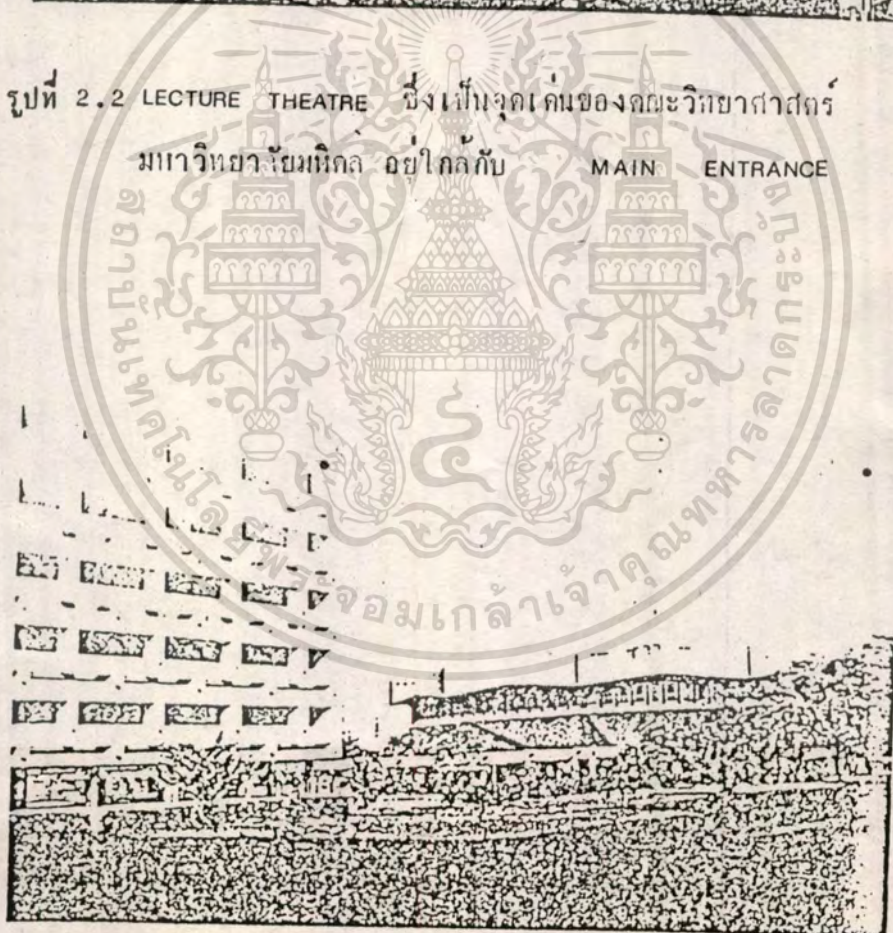 รูปที่ 2.2 LECTURE THEATRE ซึ่งเป็นจุดเด่นของคณะวิทยาศาสตร์
มหาวิทยาลัยมหิดล อยู่ใกล้กับ MAIN ENTRANCE
สถาบันเทคโนโลยีพระจอมเกล้าเจ้าคุณทหารลาดกระบัง